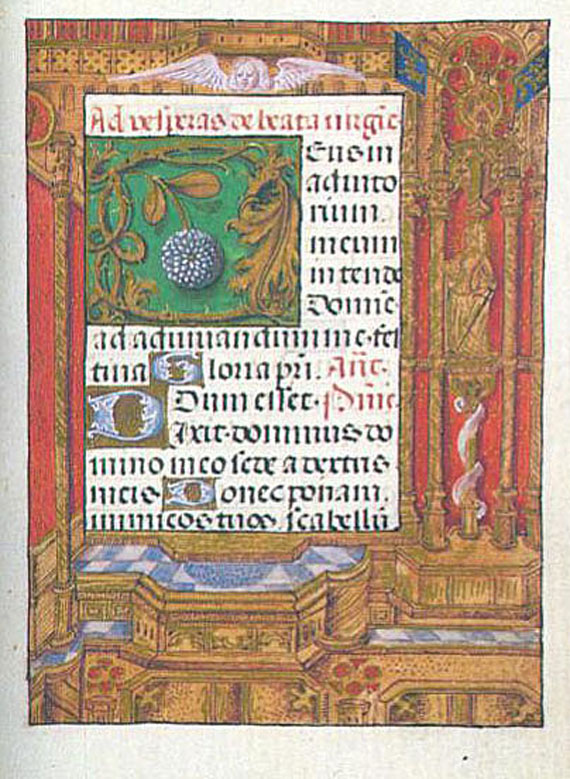 Ad vesperas de beata virgīe
Eus in
adiuto
rium
meum
intende
Domīe
ad adiuuandum me · fes
tina Gloria pr̄i. Ant̄.
Dum esset · Ps̄me
Ixit · dominus do
mino meo sede a dextris
meis Donec ponam.
inimicos tuos. scabellū